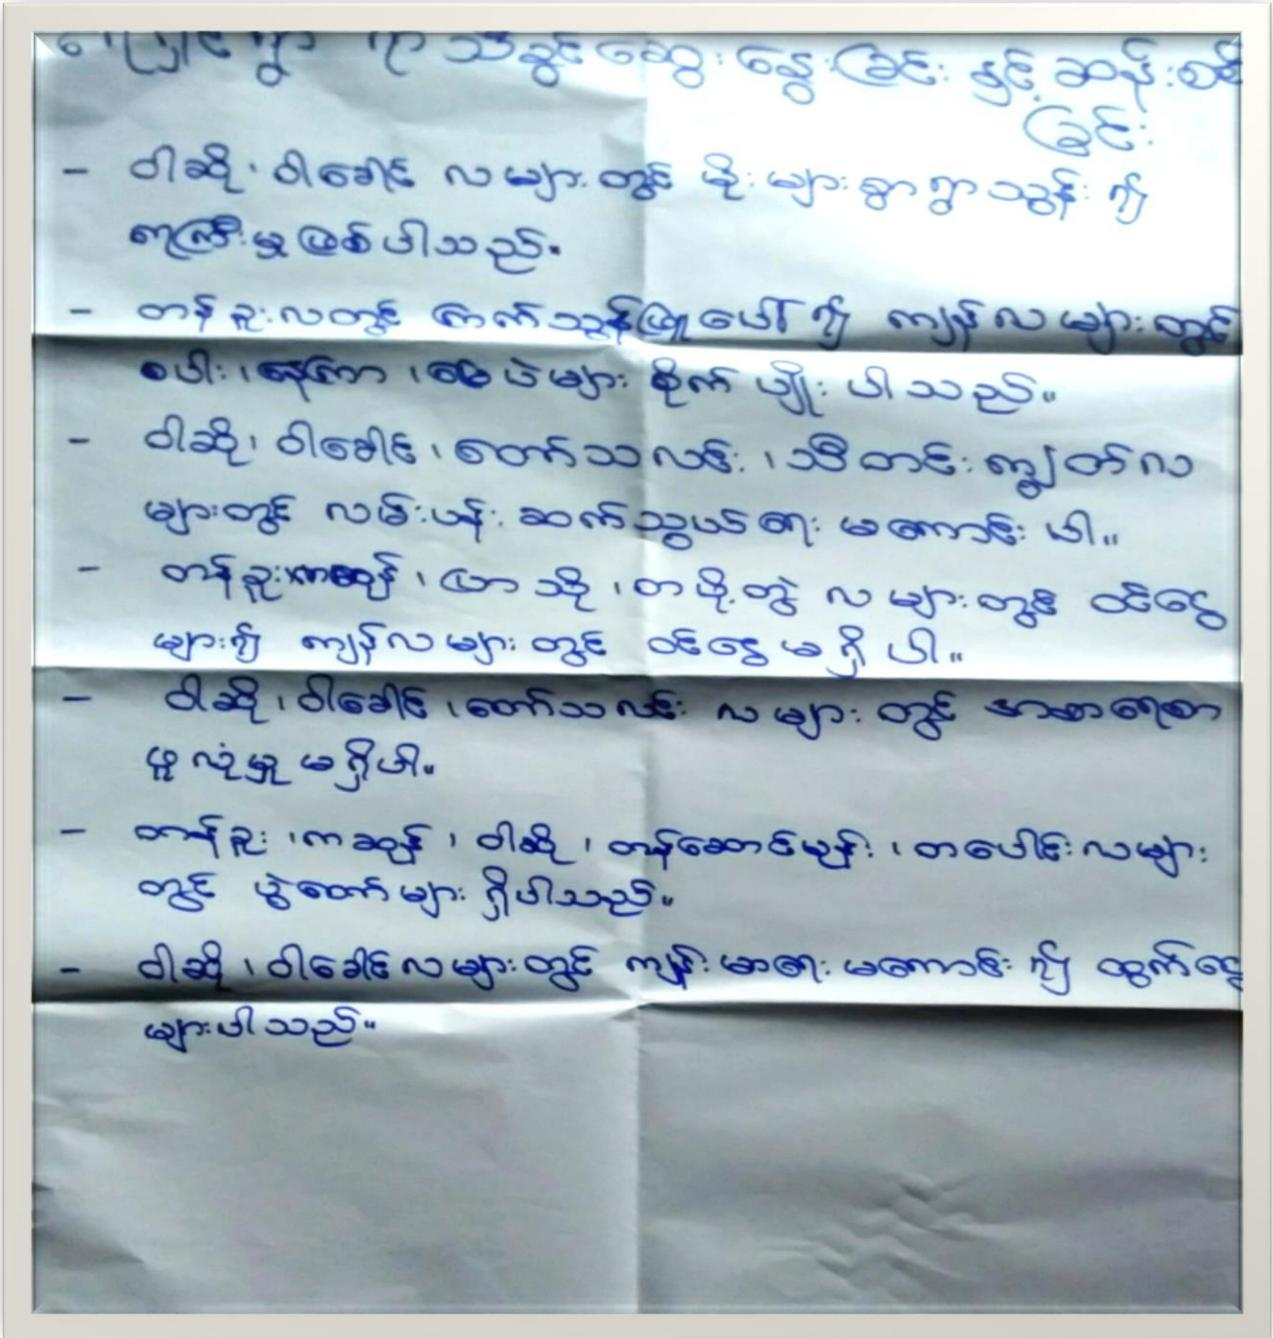 ရာသီခွင်ဆွေးနွေးခြင်းနှင့်ဆန်းစစ်
ခြင်း
- ဝါဆို၊ ဝါခေါင် လများတွင် မိုးများစွာရွာသွန်း၍
ရေကြီးမှုဖြစ်ပါသည်။
- တန်ခူးလတွင် ကြက်သွန်ဖြူပေါ်၍ ကျန်လများတွင်
စပါး၊ နေကြာ၊ မြေပဲများ စိုက်ပျိုးပါသည်။
- ဝါဆို၊ ဝါခေါင်၊ တော်သလင်း၊ သီတင်းကျွတ်လ
များတွင် လမ်းပန်းဆက်သွယ်ရေး မကောင်းပါ။
- တန်ခူး၊ ကဆုန်၊ ပြာသို၊ တပို့တွဲ လများတွင် ဝင်ငွေ
များ၍ ကျန်လများတွင် ဝင်ငွေမရှိပါ။
- ဝါဆို၊ ဝါခေါင်၊ တော်သလင်း လများတွင် အစာရေစာ
ဖူလုံမှုမရှိပါ။
- တန်ခူး၊ ကဆုန်၊ ဝါဆို၊ တန်ဆောင်မုန်း၊ တပေါင်းလများ
တွင် ပွဲတော်များ ရှိပါသည်။
- ဝါဆို၊ ဝါခေါင်လများတွင် ကျန်းမာရေး မကောင်း၍ ထွက်ငွေ
များပါသည်။